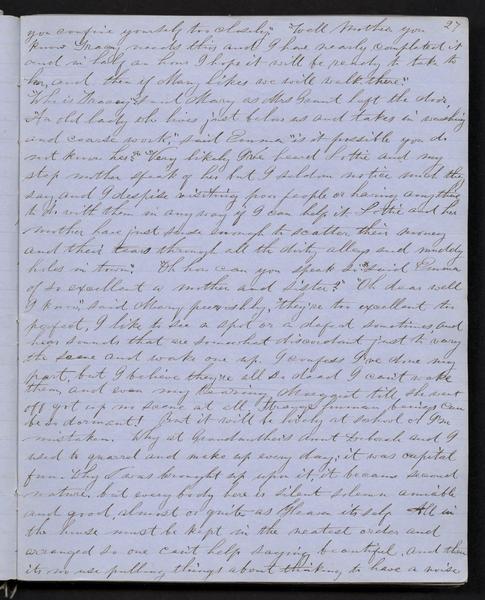 27
you confine yourself too closely." "Well Mother you
know Tracey needs this and I have nearly completed it
and in half an hour I hope it will be ready to take to
her, and then if Mary likes we will walk there."
"Who is Tracey," said Mary as Mrs Grant left the door.
"An old lady who lives just below us and takes in washing
and coarse work," said Emma "is it possible you do
not know her?" "Very likely I've heard Lottie and my
step mother speak of her but I seldom notice much they
say, and I despise visiting poor people or having anything
to do with them in any way if I can help it. Lottie and her
mother have just sense enough to scatter their money
and their tears through all the dirty alleys and muddy
holes in town." "Oh how can you speak so" said Emma
"of so excellent a mother and sister?" "Oh dear well
I know," said Mary peevishly, "they're too excellent too
perfect, I like to see a spot or a defect sometimes, and
hear sounds that are somewhat discordant just to vary
the scene and wake one up. I confess I've done my
part, but I believe they're all so dead I can't wake
them, and even my
off got up no scene at all. Strange human beings can
be so dormant! But it will be lively at school or I'm
mistaken. Why at Grandmother's Aunt Deborah and I
used to quarrel and make up every day; it was capital
fun. Why I was brought up upon it, it became second
nature. but every body here is silent solemn amiable
and good, almost or quite as Heaven itself. All in
the house must be kept in the neatest order and
arranged so one can't help saying beautiful. And then
its no use pulling things about thinking to have a noise